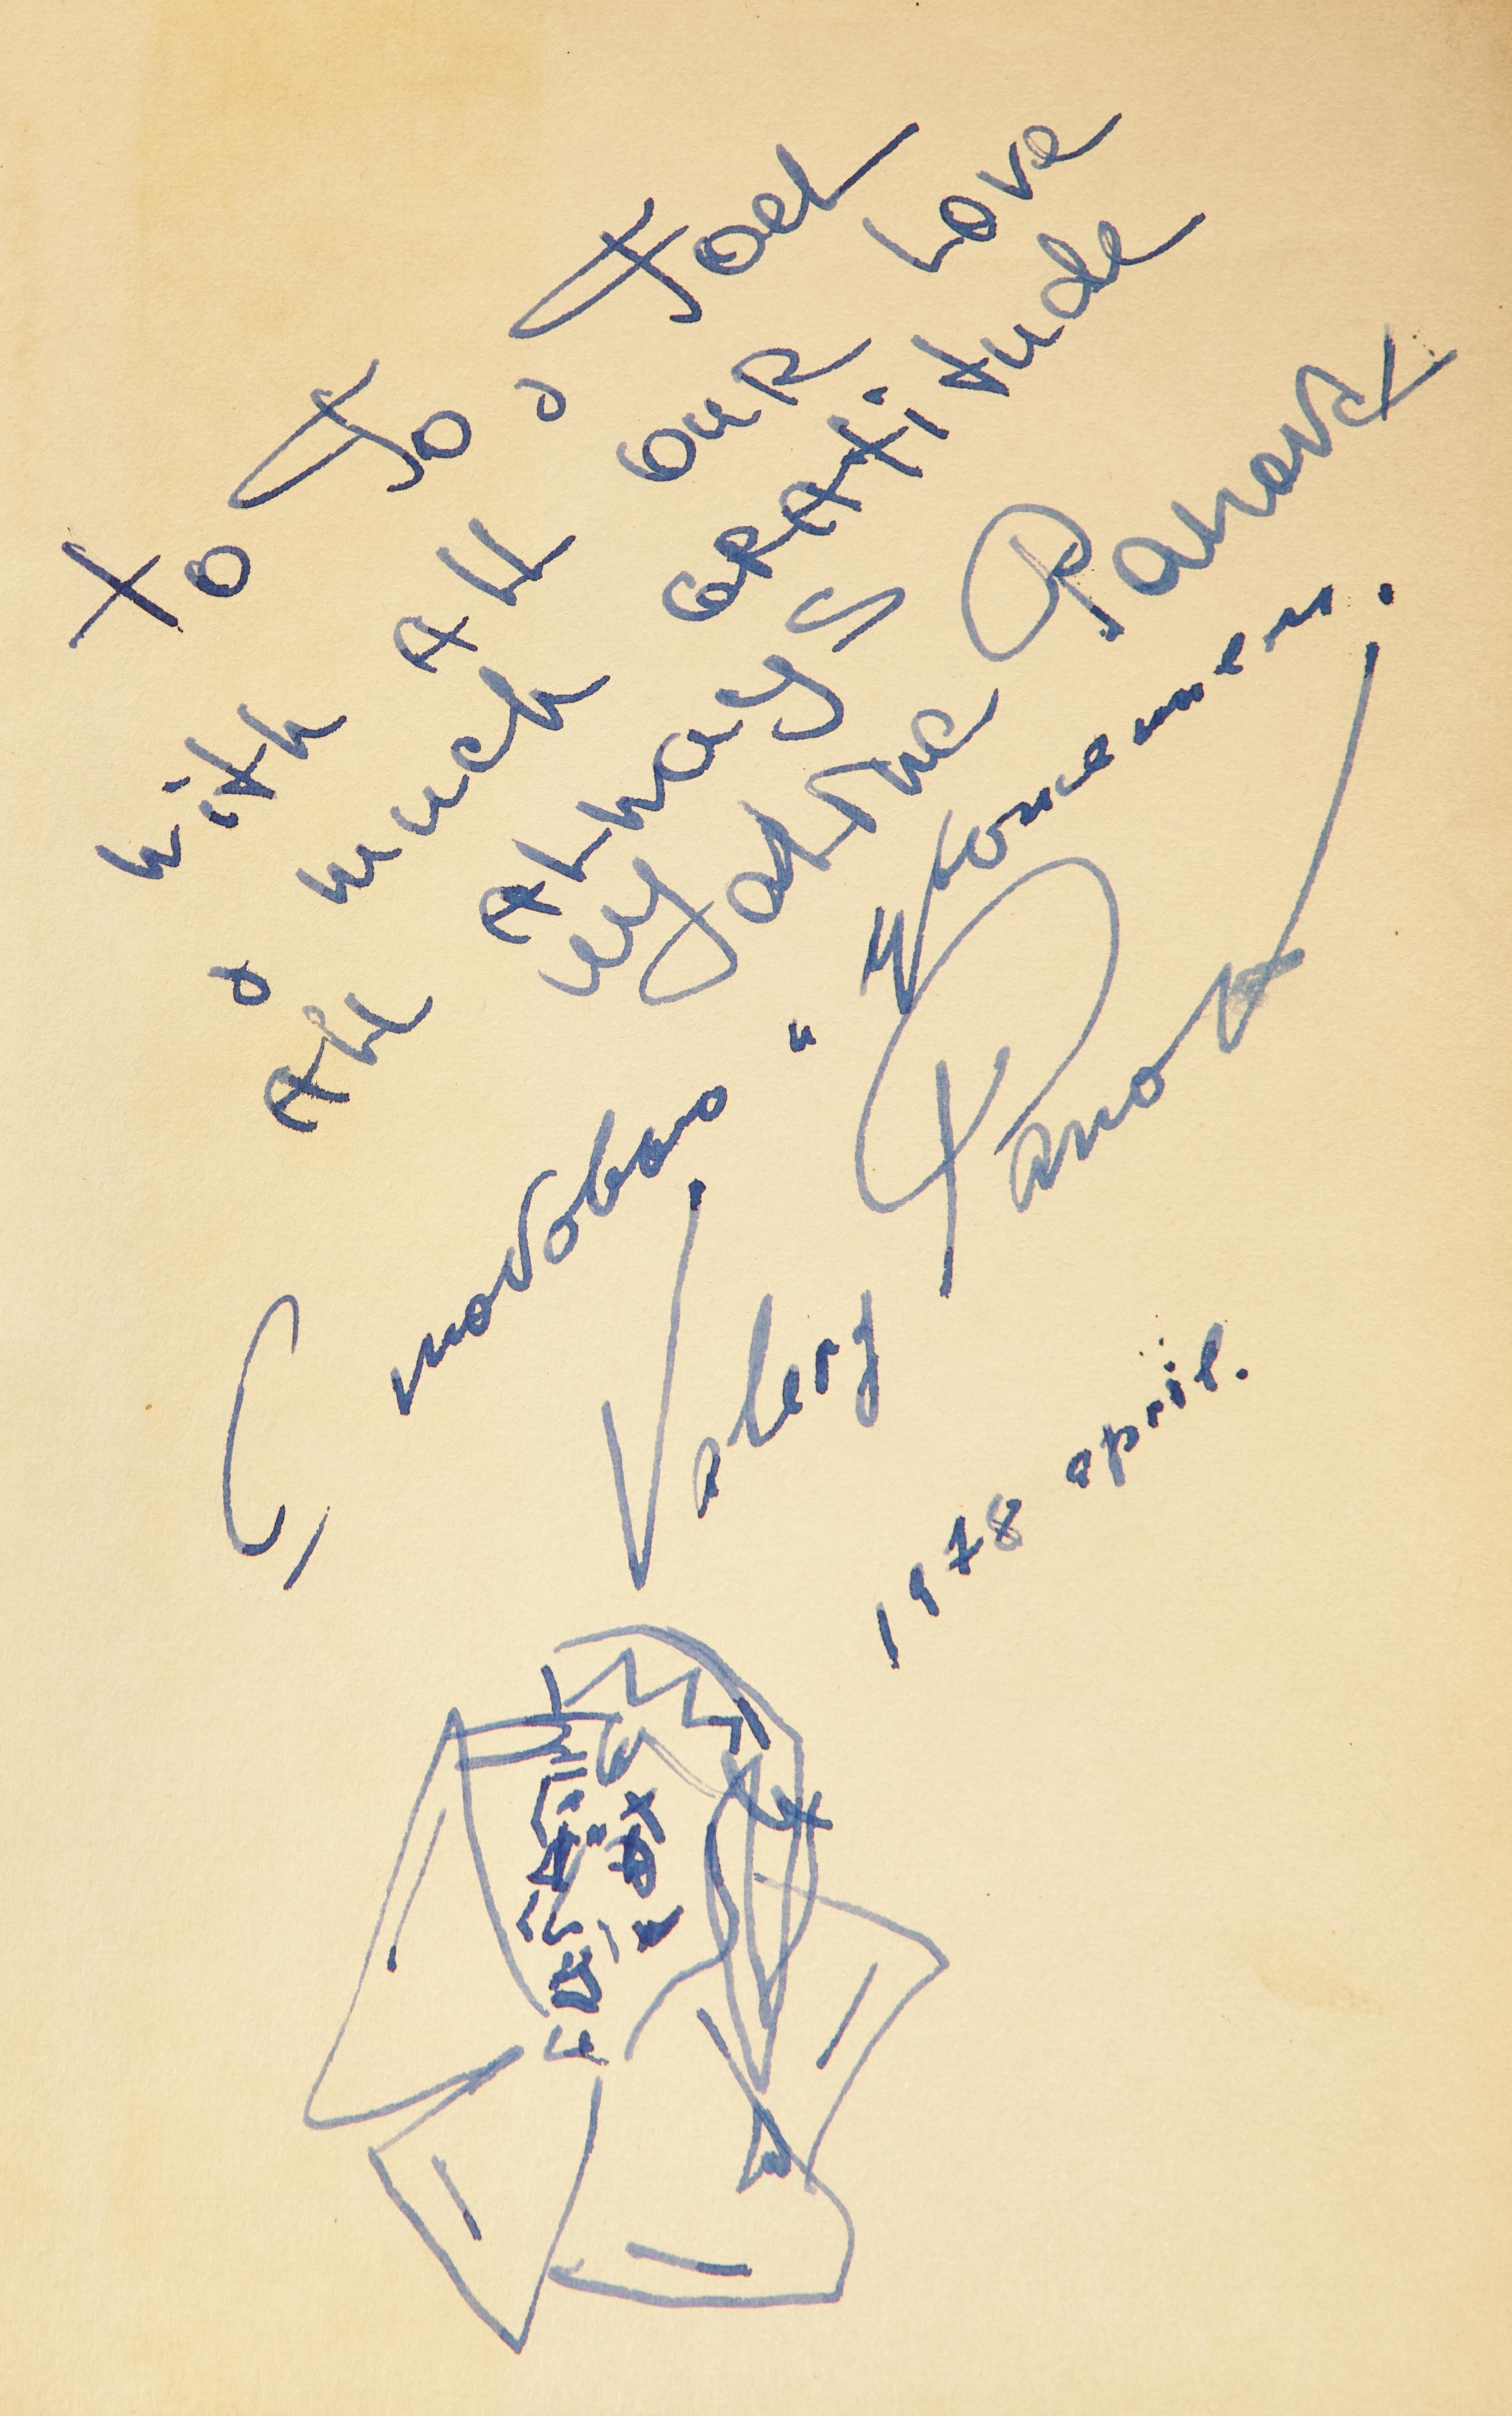 to Jo & Joel
with All our Love
& much GRAtitude
All Always
Galina Panova
С любовью и
Valery Panov
1978 april.